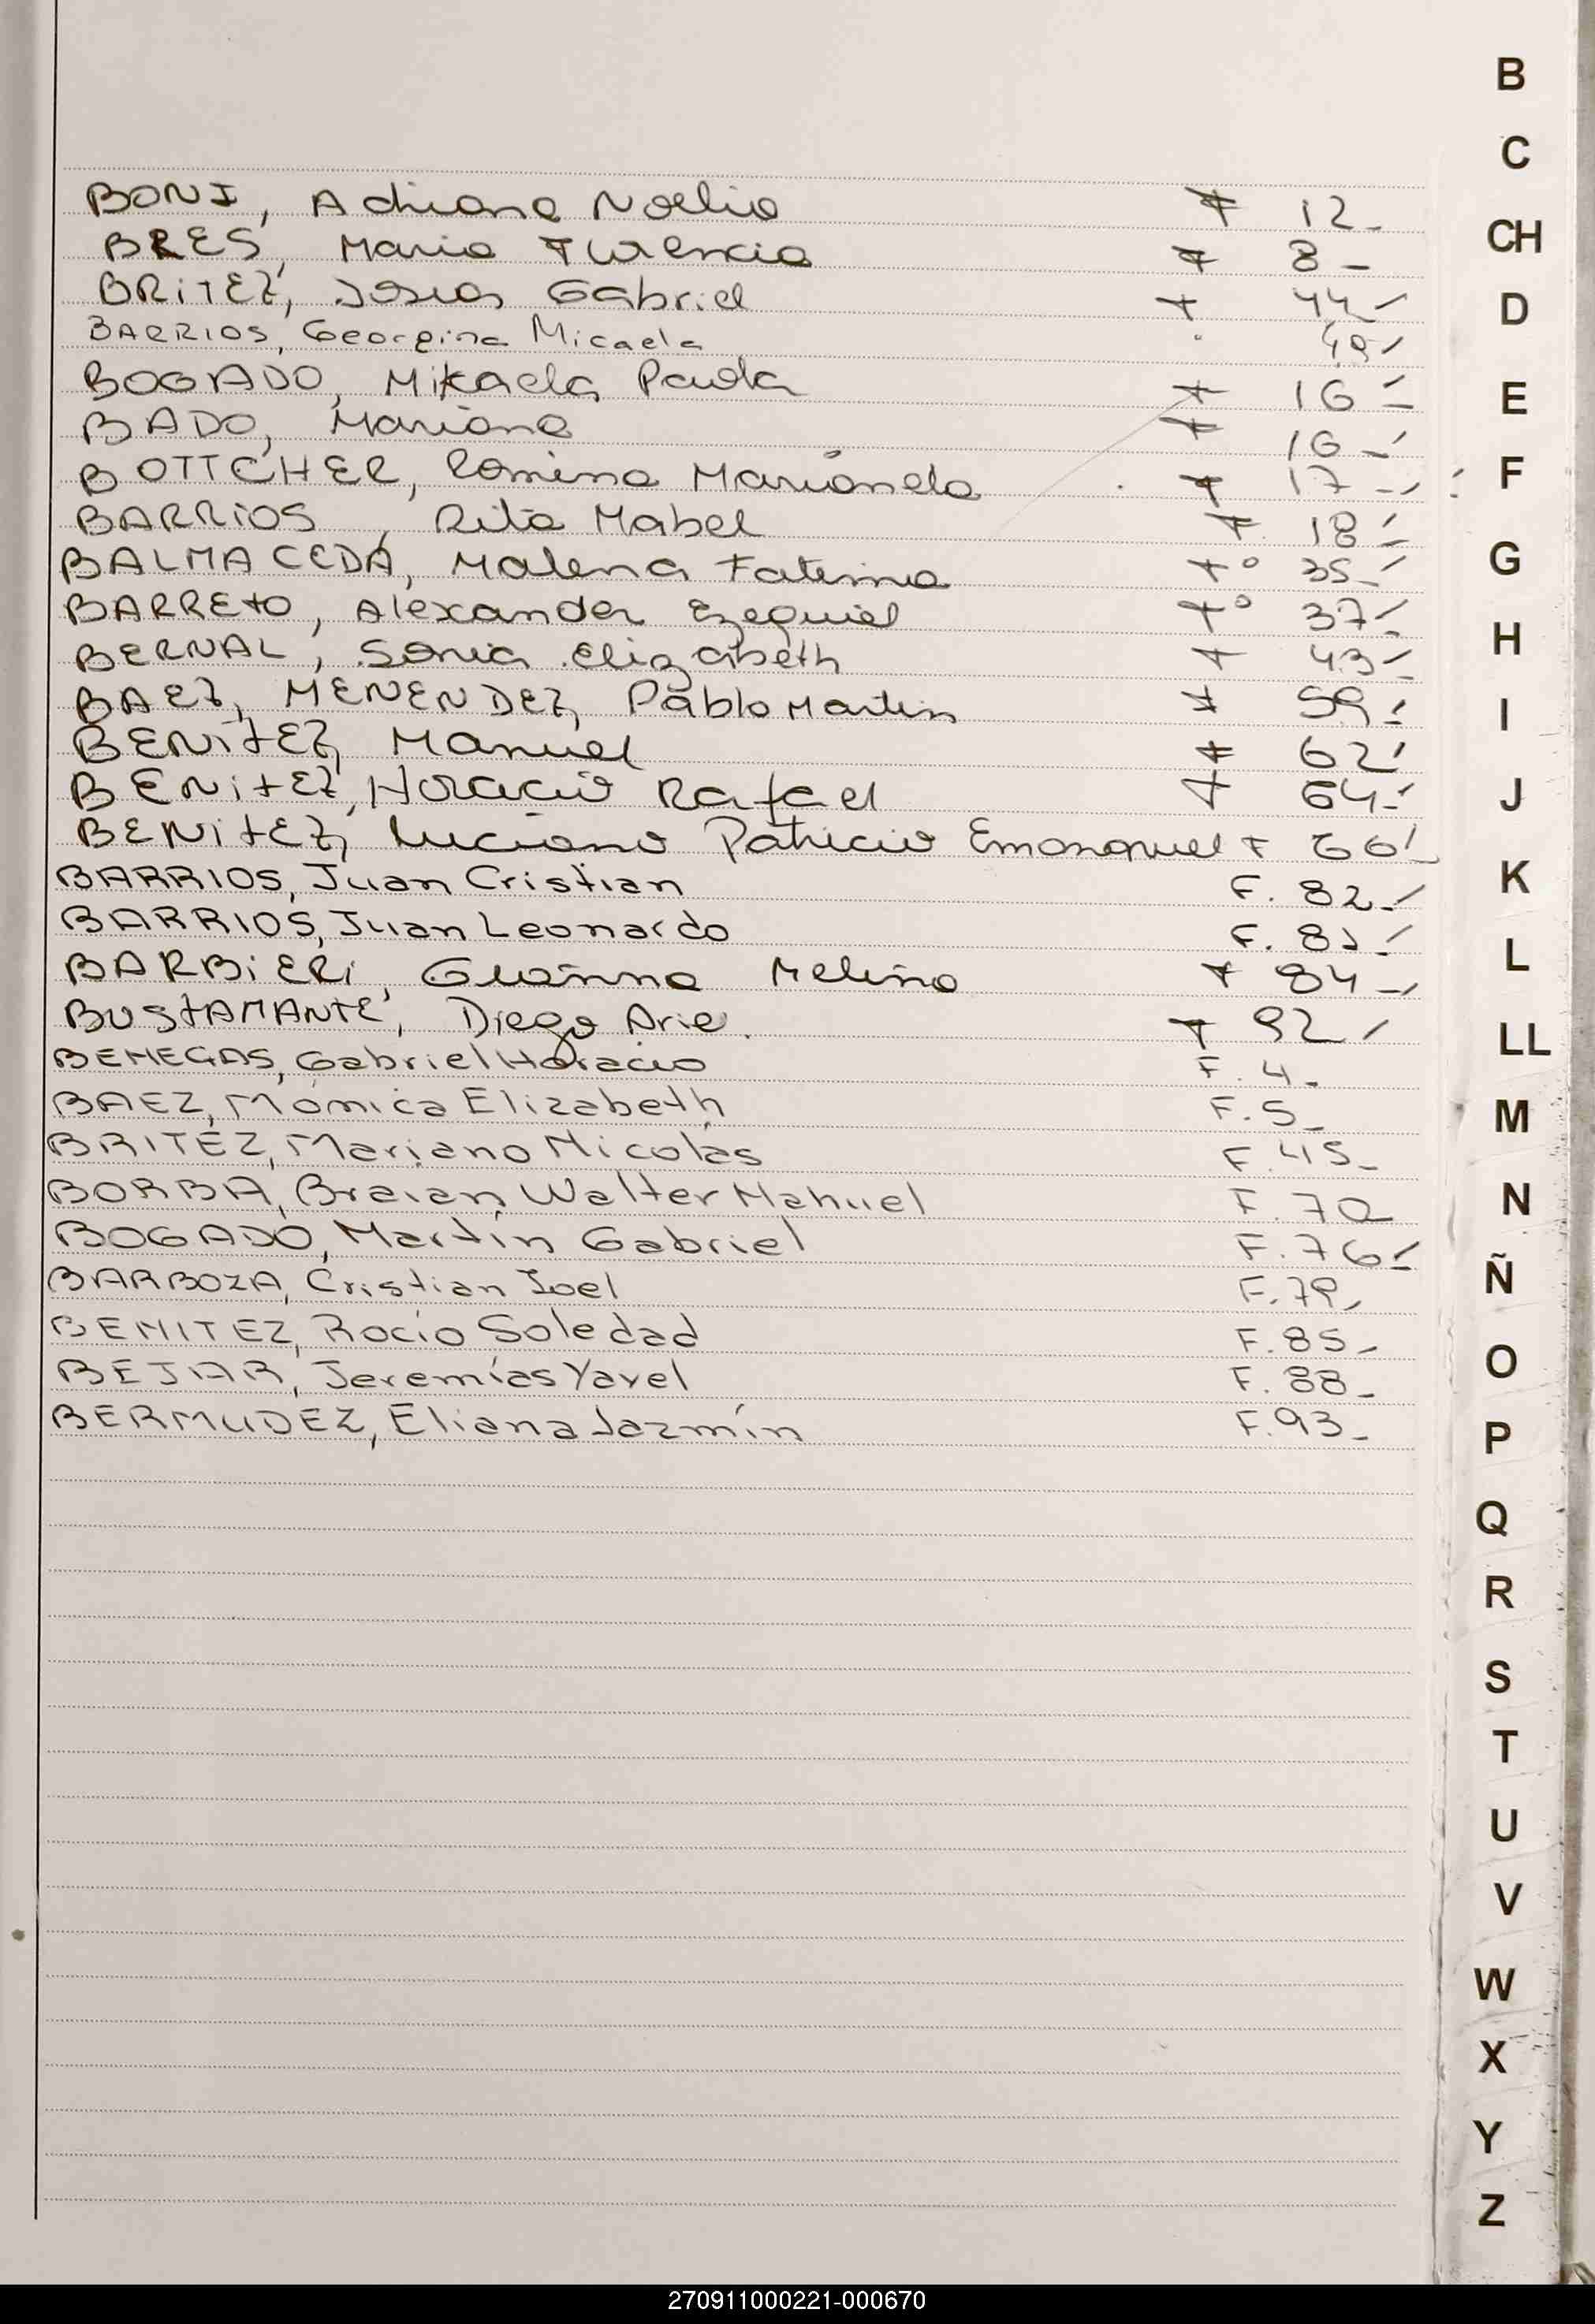 B
C
CH
D
E
F
G
H
I
J
K
L
LL
M
N
Ñ
O
P
Q
R
S
T
U
V
W
X
Y
Z
BONI, Adriana Noelia F 12-
BRES, Maria Florencia F 8-
BRITEZ, Josias Gabriel F 44-
BARRIOS, Georgina Micaela 49-
BOGADO, Mikaela Paola F 16-
BADO, Mariana F 16-
BOTTCHER, Romina Marianela F 17-
BARRIOS, Rita Mabel F 18-
BALMACEDA, Malena Fatima Fº 35-
BARRETO, Alexander Ezequiel Fº 37-
BERNAL, Sonia Elizabeth F 43-
BAEZ, MENENDEZ, Pablo Martin F 59-
BENITEZ, Manuel F 62
BENITEZ, Horacio Rafael F 64-
BENITEZ, Luciano Patricio Emananuel F 66-
BARRIOS, Juan Cristian F. 82-
BARRIOS, Juan Leonardo F.
BARBIERI, Gianna Melina F 84-
BUSTAMANTE, Diego Arie. F 92
BENEGAS, Gabriel Horacio F. 4-
BAEZ, Mónica Elizabeth F. 5-
BRITEZ, Mariano Nicolás F. 45-
BORBA, Braian Walter Nahuel F. 70
BOGADO, Martín Gabriel F. 76-
BARBOZA, Cristian Ioel F. 79-
BENITEZ, Rocío Soledad F. 85-
BEJAR, Jeremías Yavel F. 88-
BERMUDEZ, Eliana Jazmín F. 93-
270911000221-000670